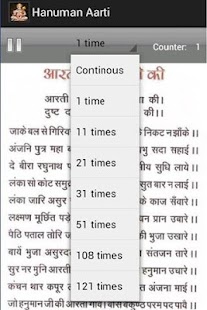 Hanuman Aarti
1 time
Counter: 1
Continous
1 time
11 times
21 times
31 times
51 times
108 times
121 times
आरत
की
आरती
की।
दुष्ट दल
की॥
जाके बल से गिरि
निकट न झाँके।
अंजनि पुत्र महा
सदा सहाई।
दे बीरा रघुनाथ
सुधि लाये।
लंका सो कोट समु
लंका जारि असुर
लक्ष्मण मूर्छित पड़े
पैठि पताल तोरि
बायें भुजा असुरद
संतजन तारे।
सुर नर मुनि आरती
उचारे।
कंचन थार कपूर
अंजना माई।
जो हनुमान जी की आरती गावै। बसि बैकुण्ठ परम पद पावै।